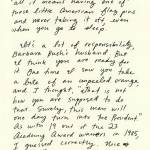 all it means having one of
those little American flag pins
and never taking it off, even
when you go to sleep.
It's a lot of responsibility,
Barbara Bush's husband. But
I think you are ready for
it. One time I saw you take
a bite of an unpeeled orange,
and I thought, "that is not
how you are supposed to do
that. Surely, this man will
one day turn into the President."
As with 19 out of the 23
Academy Award winners in 1985,
I guessed correctly. Nice